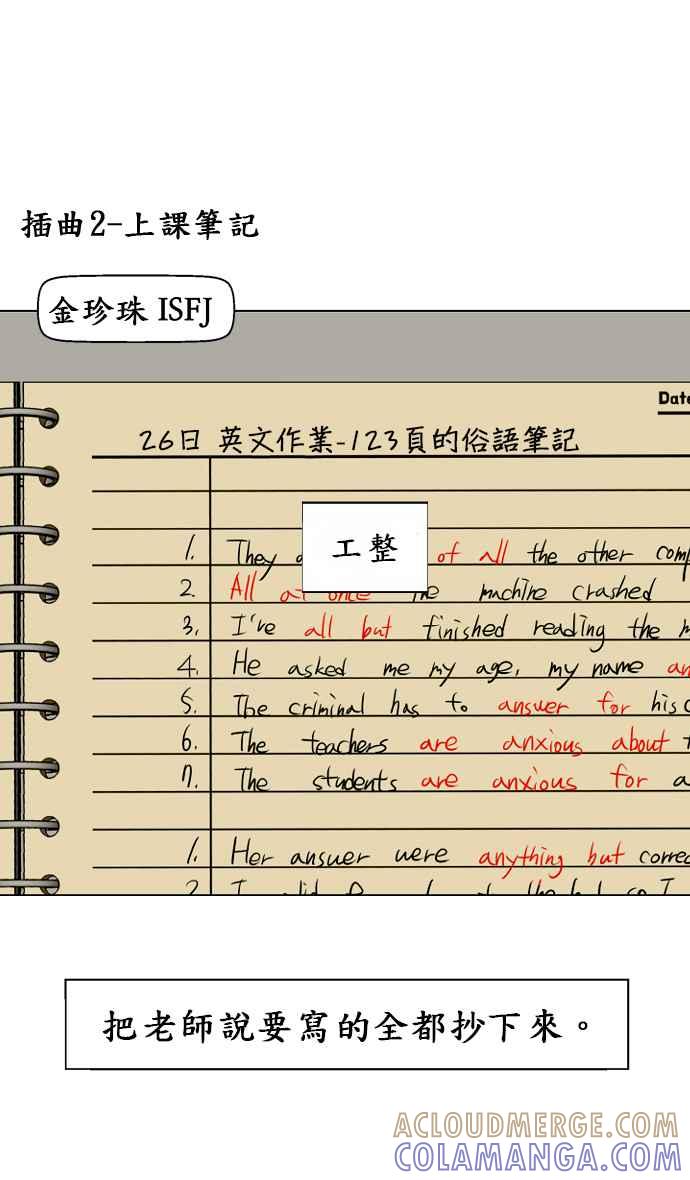 插曲2-上課筆記
金珍珠 ISFJ
Date
26日 英文作業-123頁的俗語筆記
工整
1. They of all the other comp
2. All at once the machine crashed
3. I've all but finished reading the m
4. He asked me my age, my name an
5. The criminal has to answer for his c
6. The teachers are anxious about t
7. The students are anxious for a
1. Her answer were anything but correc
2
把老師說要寫的全都抄下來。
ACLOUDMERGE.COM
COLAMANGA.COM